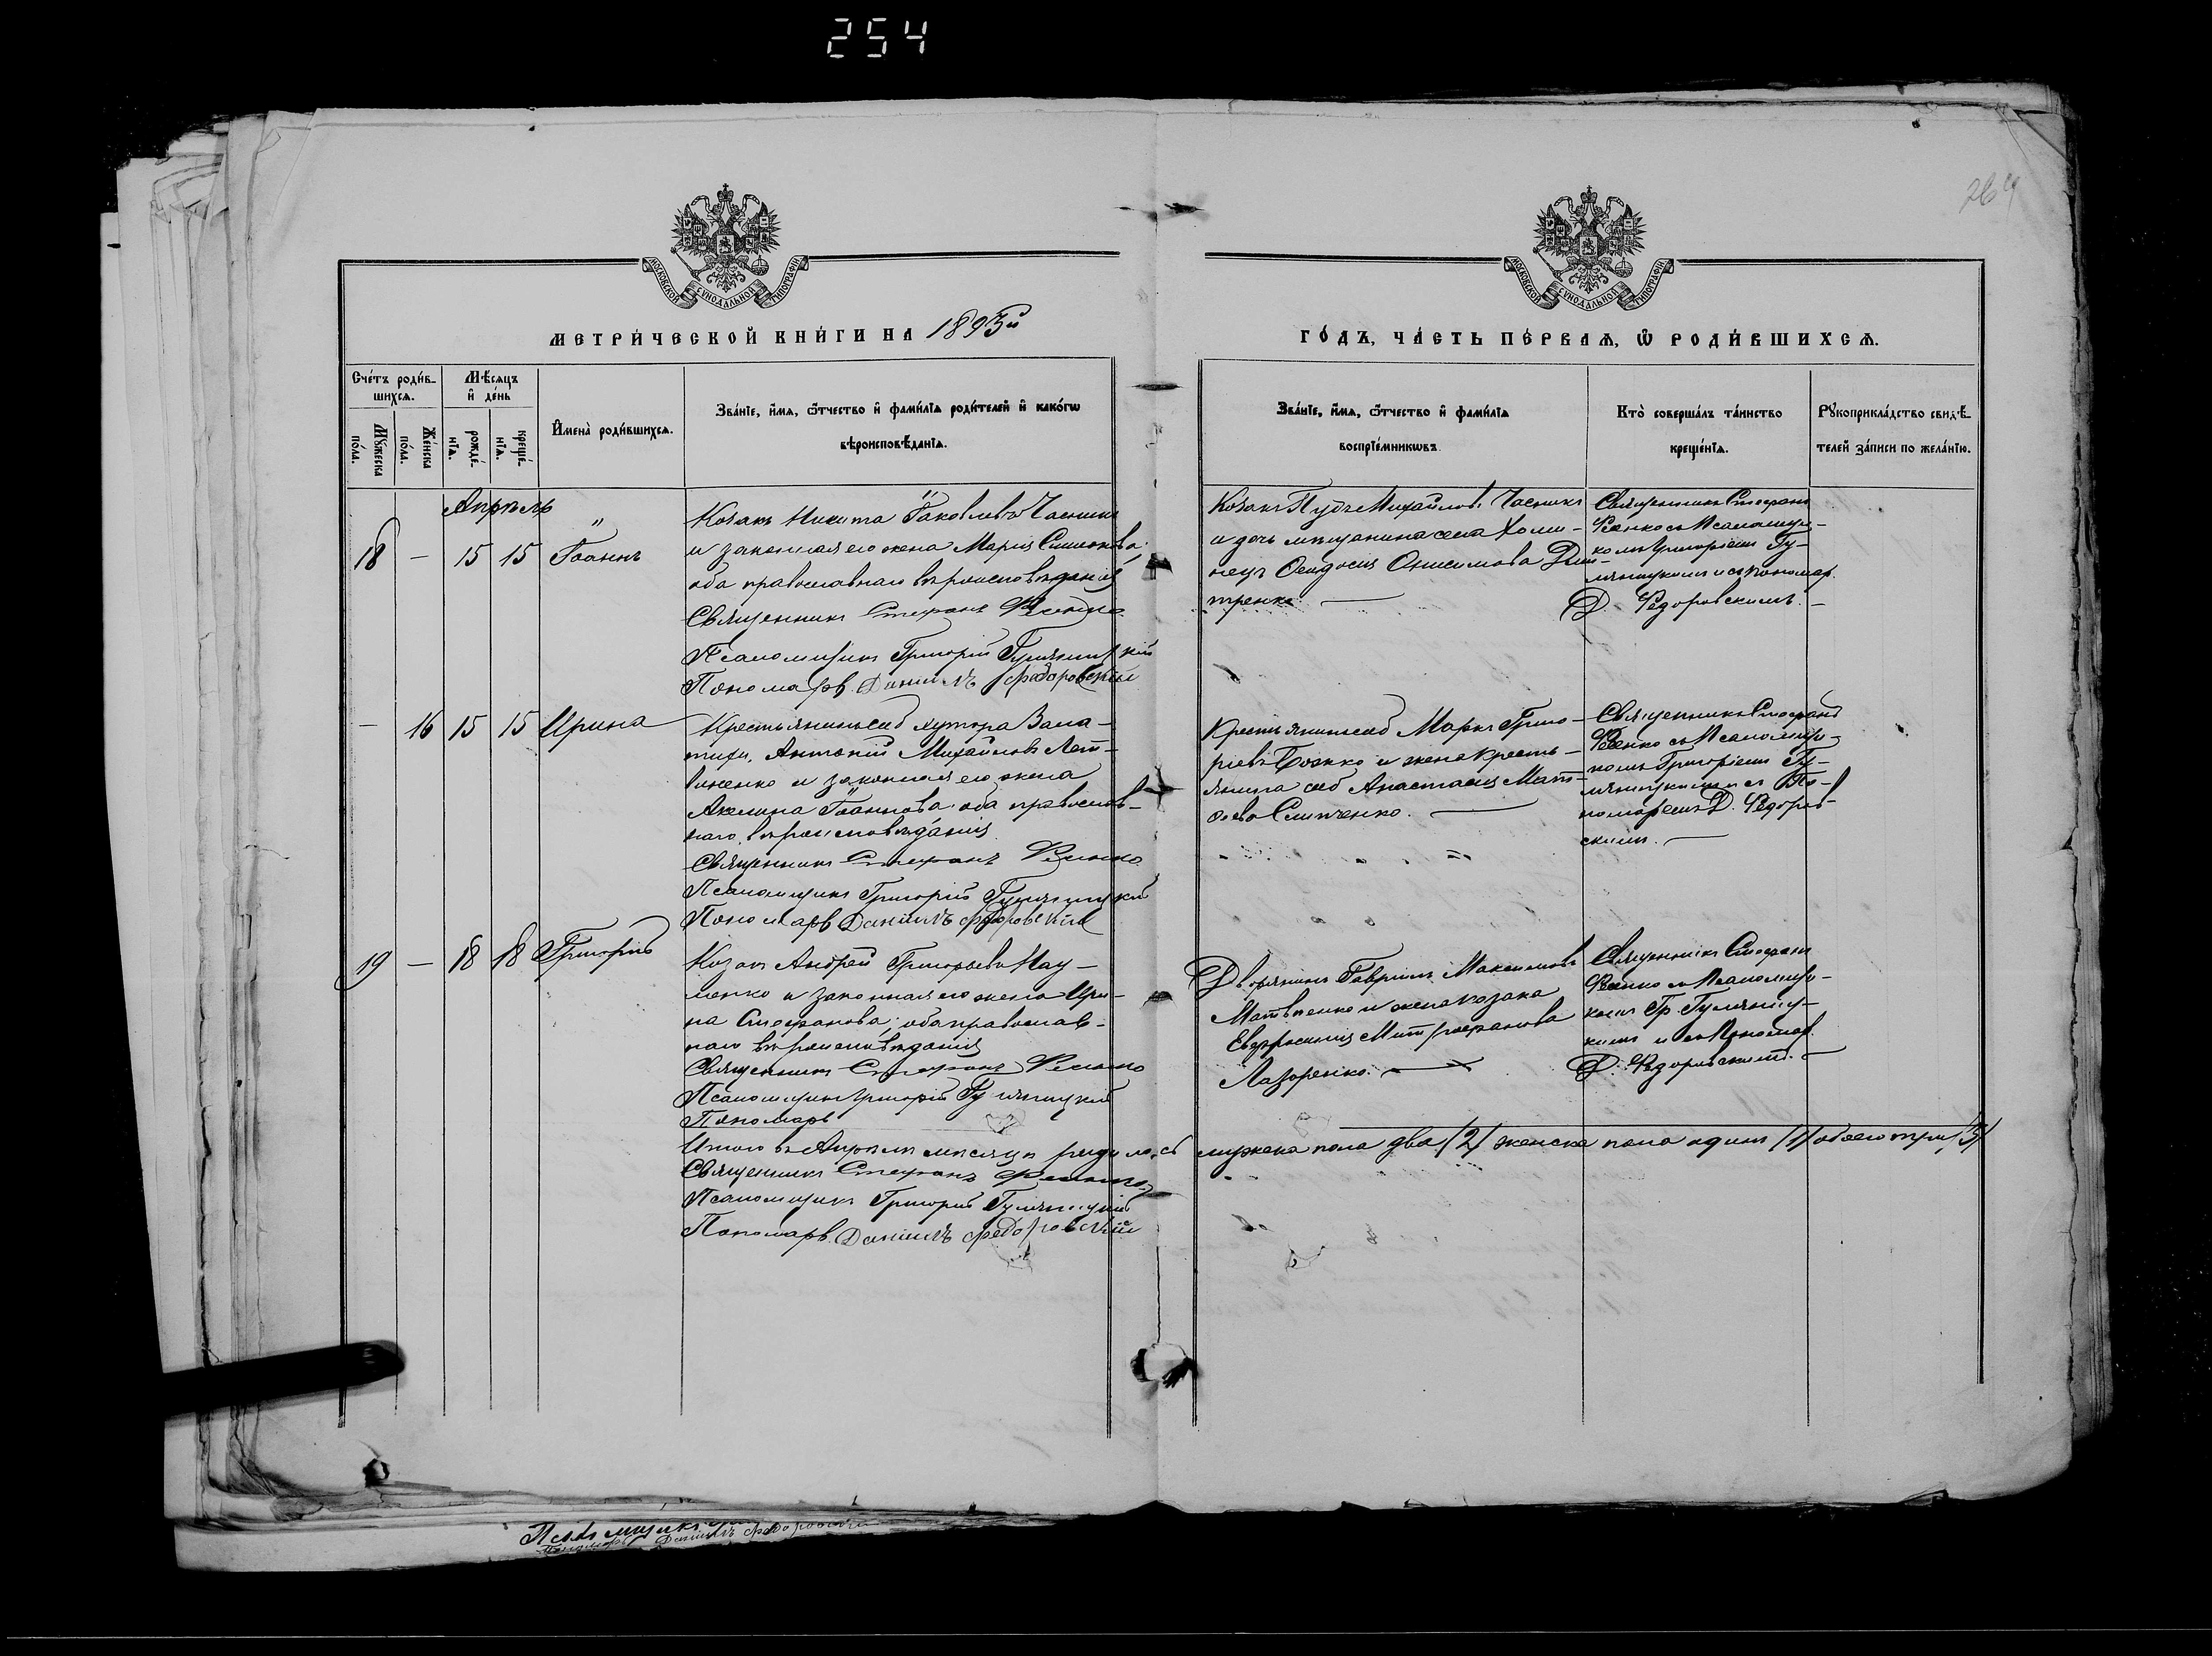 254
264
МОСКОВСКОЙ СѴНОДАЛЬНОЙ ТИПОГРАФІИ
МОСКОВСКОЙ СѴНОДАЛЬНОЙ ТИПОГРАФІИ
МЕТРИ́ЧЕСКОЙ КНИ́ГИ НА 1893й
ГО́ДЪ, ЧА́СТЬ ПЕ́РВАѦ, Ѡ҆ РОДИ́ВШИХСѦ.
Счéтъ роди́в-
шихсѧ.
Мѣ́сѧцъ
и҆ дéнь
Мꙋ́жеска
пóла.
Жéнска
пóла.
рождé-
нїѧ.
крещé-
нїѧ.
И҆мена̀ роди́вшихсѧ.
Звáнїе, и҆́мѧ, ѻ҆́тчество и҆ фами́лїѧ роди́телей и҆ какóгѡ
вѣроисповѣ́данїѧ.
Звáнїе, и҆́мѧ, ѻ҆́тчество и҆ фами́лїѧ
воспрїéмникѡвъ
Ктò совершáлъ тáинство
крещéнїѧ.
Рꙋкоприклáдство свидѣ́-
телей зáписи по желáнїю.
Апрѣль
18 — 15 15 Іоаннъ
Козакъ Никита Іаковлевъ Часникъ
и законная его жена Марія Симеонова,
оба православнаго вѣроисповѣданія
Священникъ Стефанъ Фесенко
Псаломщикъ Григорій Гуляницкій
Пономарь Даніилъ Федоровскій
Козакъ Пудъ Михайловъ Часникъ
и дочь мѣщанина села Хоми-
нецъ Феодосія Онисимова Дми-
тренко. —
Священникъ Стефанъ
Фесенко съ Псаломщи-
комъ Григоріемъ Гу-
ляницкимъ и съ пономар.
Д. Федоровскимъ. —
— 16 15 15 Ирина
Крестьянинъ соб хутора
Антоній Михайловъ Лит-
виненко и законная его жена
Акилина Іоаннова оба православ-
наго вѣроисповѣданія
Священникъ Стефанъ Фесенко
Псаломщикъ Григорій Гуляницкій
Пономарь Даніилъ Федоровскій
Крестьянинъ соб Маркъ Григо-
ріевъ Божко и жена кресть-
янина соб Анастасія Мат-
ѳеева Слипченко. —
Священникъ Стефанъ
Фесенко съ Псаломщи-
комъ Григоріемъ Гу-
ляницкимъ и съ По-
номаремъ Д. Федоров-
скимъ. —
19 — 18 18 Григорій
Козакъ Андрей Григорьевъ Нау-
менко и законная его жена Ири-
на Стефанова; оба православ-
наго вѣроисповѣданія
Священникъ Стефанъ Фесенко
Псаломщикъ Григорій Гуляницкій
Пономарь
Дворянинъ Гавріилъ Максимовъ
Матвѣенко и жена козака
Евфросинія Митрофанова
Лазоренко. —
Священникъ Стефанъ
Фесенко съ Псаломщи-
комъ Гр. Гуляниц-
кимъ и съ Пономар.
Д. Федоровскимъ. —
Итого въ Апрѣлѣ мѣсяцѣ родилось мужеска пола два (2) женска пола одинъ (1) обоего три (3)
Священникъ Стефанъ Фесенко
Псаломщикъ Григорій Гуляницкій
Пономарь Даніилъ Федоровскій
Псаломщикъ
Пономарь Даніилъ Федоровскій